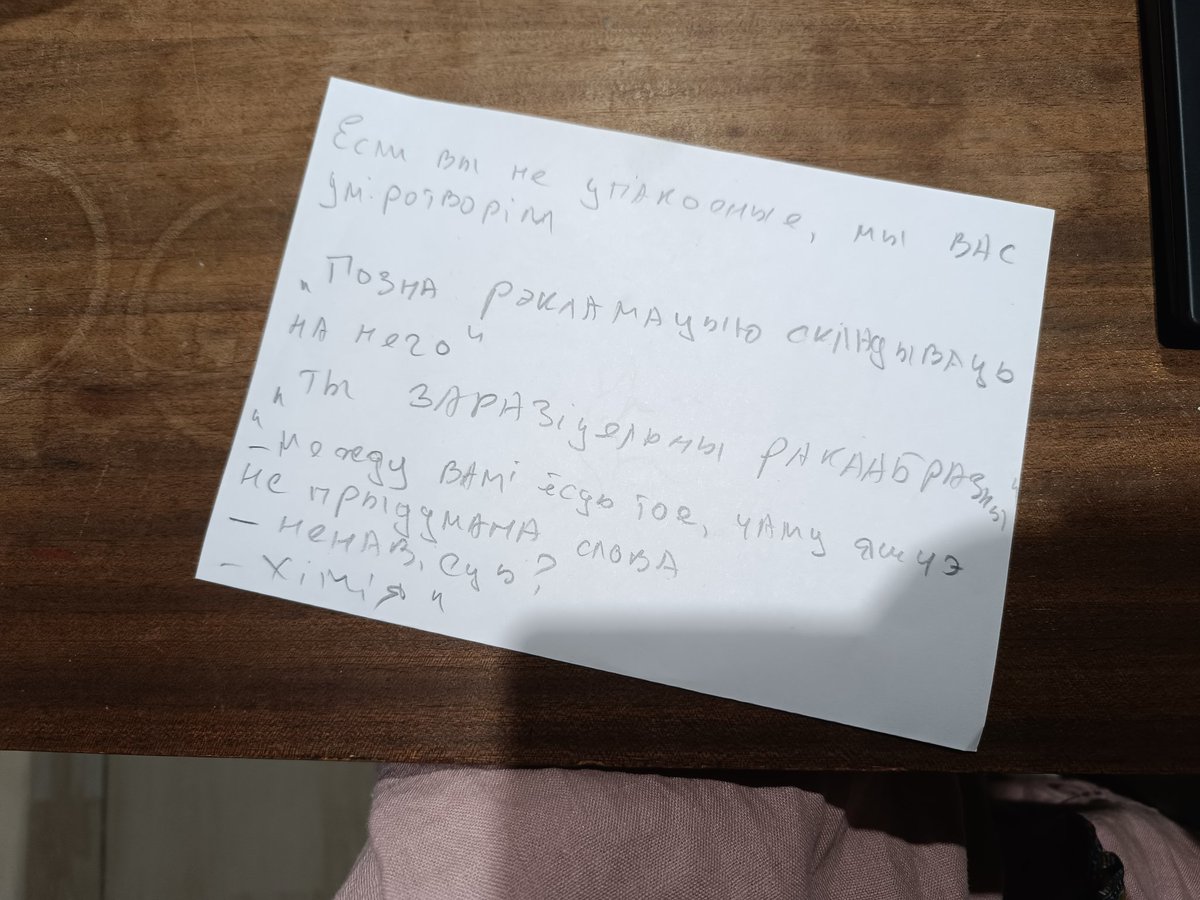 Если вы не упакоеные, мы вас
уміротворім
"Позна рэкламацыю складываць
на него"
"Ты заразіцельны ракаабразны"
"– Между вамі ёсць тое, чаму яшчэ
не прыдумана слова
– Ненавісць?
– Хімія"